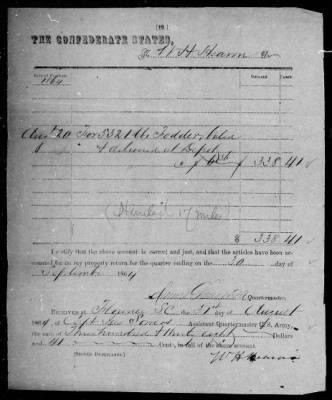 [19]
THE CONFEDERATE STATES,
To W H Hearon Dr
DOLLARS CENTS
1864
Augt 20 For 5321 lbs Fodder,
& delivered at Depot
338 41
(Hauled 17 miles)
$ 338 41
I certify that the above account is correct and just, and that the articles have been ac-
counted for on my property return for the quarter ending on the 30 day of
September 1864
Quartermaster.
RECEIVED at Florence SC the 31 of August
1864 of Capt Assistant Quartermaster C. S. Army,
Three hundred & thirty eight Dollars
and 41 Cents, in full of the above account.
(SIGNED DUPLICATES.)
W H Hearon